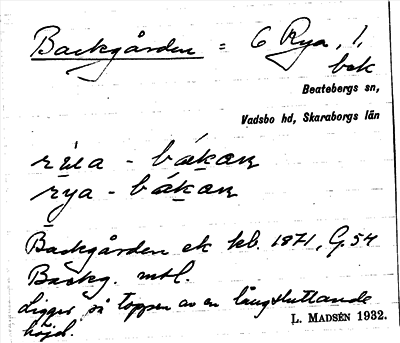 Backgården = 6 Rya, 1,
bek
Beatebergs sn,
Vadsbo hd, Skaraborgs län
rya - bákaṇ
Backgården ek kb. 1871, G. 54
Backg. mtl.
Ligger på toppen av en långsluttande
höjd.
L. MADSÉN 1932.